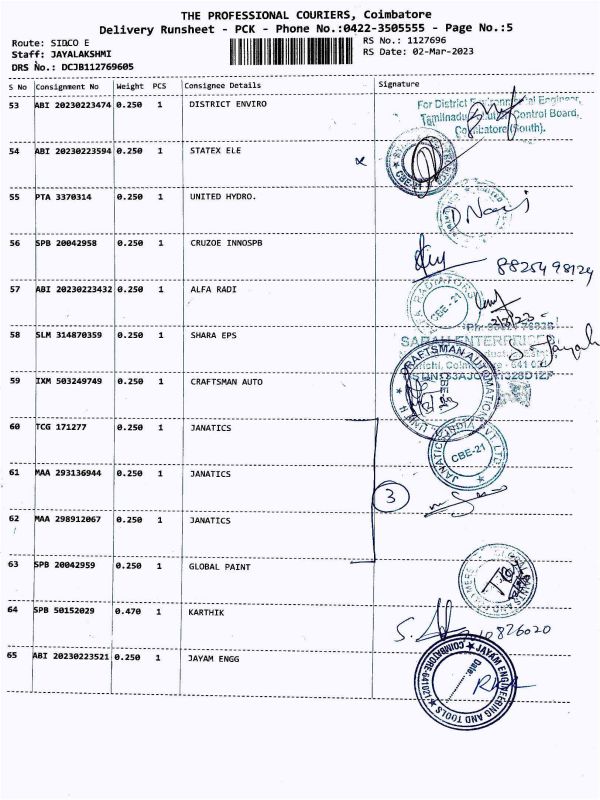 THE PROFESSIONAL COURIERS, Coimbatore
Delivery Runsheet - PCK - Phone No.:0422-3505555 - Page No.:5
Route: SIDCO E
Staff: JAYALAKSHMI
DRS No.: DCJB112769605
RS No.: 1127696
RS Date: 02-Mar-2023
S No Consignment No Weight PCS Consignee Details Signature
53 ABI 20230223474 0.250 1 DISTRICT ENVIRO
For District Environmental Engineer,
Tamilnadu Pollution Control Board,
Coimbatore (South).
54 ABI 20230223594 0.250 1 STATEX ELE
CBE-21
55 PTA 3370314 0.250 1 UNITED HYDRO.
56 SPB 20042958 0.250 1 CRUZOE INNOSPB
8825498124
57 ABI 20230223432 0.250 1 ALFA RADI
ALFA RADIATORS
CBE - 21
58 SLM 314870359 0.250 1 SHARA EPS
59 IXM 503249749 0.250 1 CRAFTSMAN AUTO
CRAFTSMAN AUTOMATION PVT LTD
60 TCG 171277 0.250 1 JANATICS
JANATICS INDIA
CBE-21
61 MAA 293136944 0.250 1 JANATICS
3
62 MAA 298912067 0.250 1 JANATICS
63 SPB 20042959 0.250 1 GLOBAL PAINT
64 SPB 50152029 0.470 1 KARTHIK
65 ABI 20230223521 0.250 1 JAYAM ENGG
JAYAM ENGINEERING AND TOOLS
COIMBATORE-641021
Date: